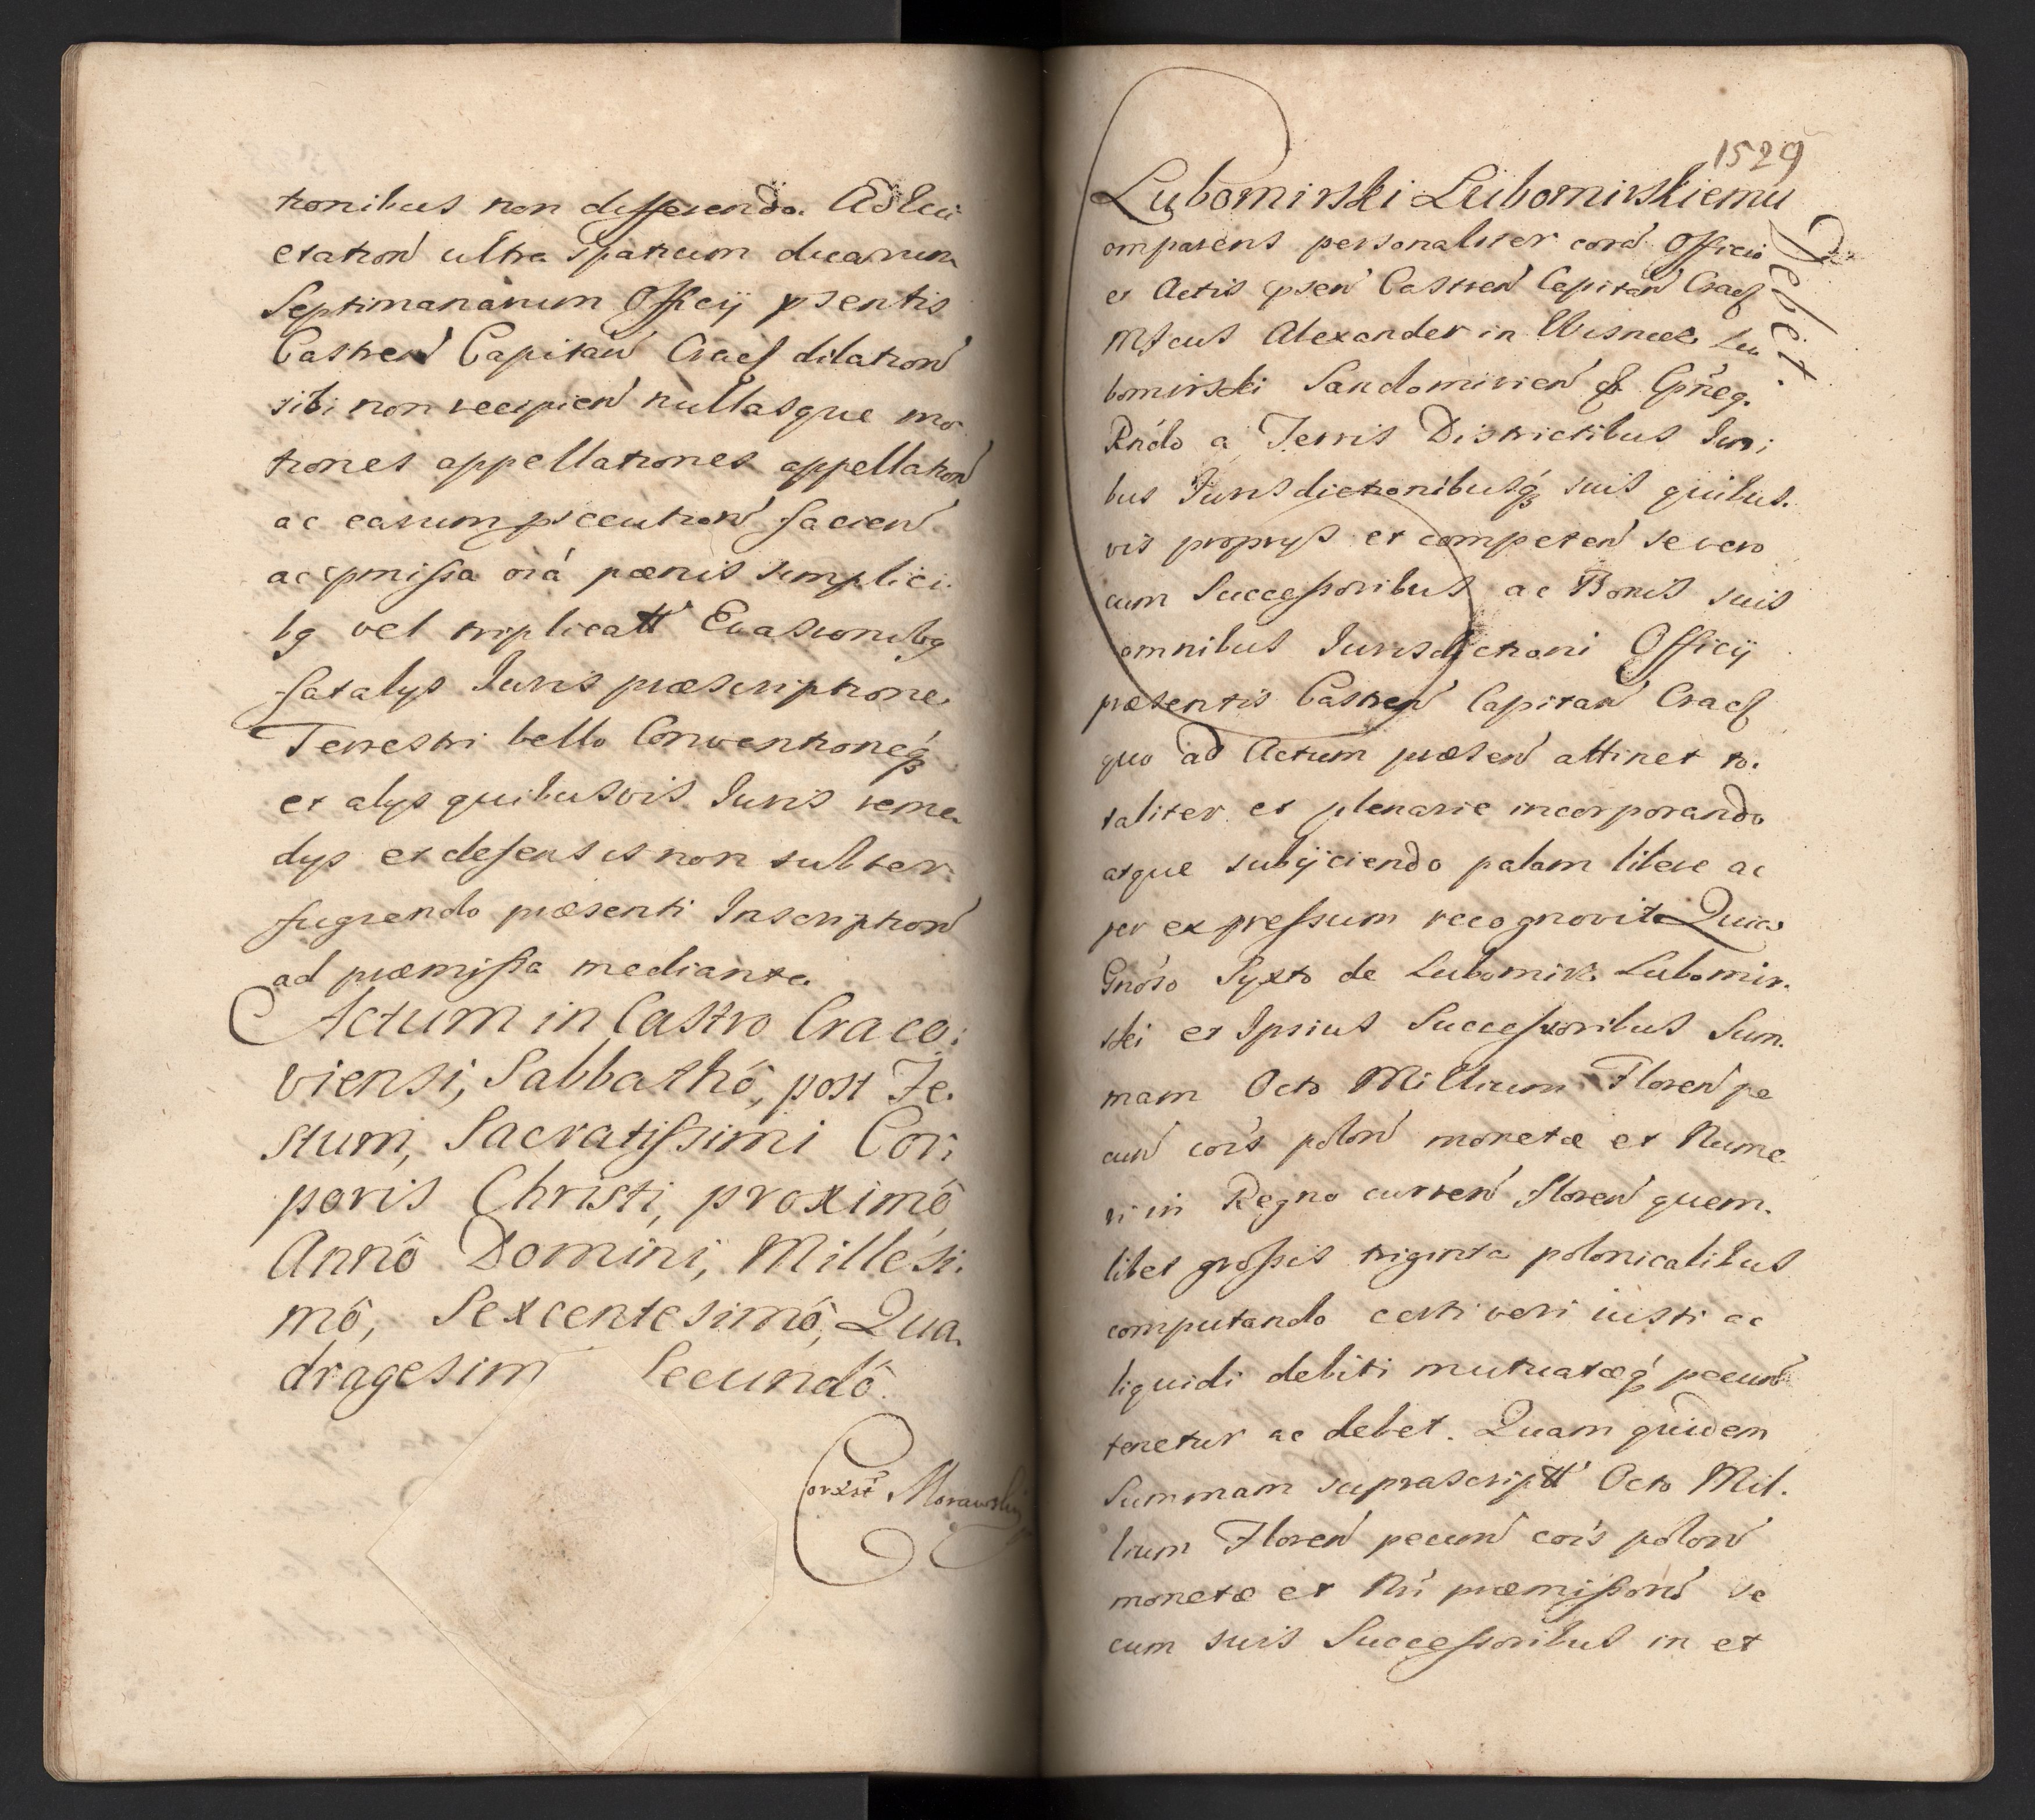 tionibus non differendo. Adhuc
etation ultra Spatium duarum
Septimanarum Officij psentis
Castren Capitan Cracs dilation
sibi non recipien nullasque mo
tiones appellationes appellation
ac earum psecution facien
ac pmissa oia pœnis simplici.
bq vel triplicatt Euasionibq
fatalijs Juris præscriptione
Terrestri bello Conventioneq
et alijs quibusvis Juris reme
dijs et defensis non subter
fugiendo præsenti Inscription
ad præmissa mediante.
Actum in Castro Craco:
viensi, Sabbathô, post Fe.
stum, Sacratissimi Cor:
poris Christi, proximô
Annô Domini, Millesi.
mô, Sexcentesimô, Qua.
dragesim Secundô.
Corxit Morawski
1529
Lubomirski Lubomirskiemu
Debet.
omparens personaliter corã Officio
et Actis psen Castren Capitan Cracs
Mfcus Alexander in Wisnicz Lu
bomirski Sandomirien & Gńeq.
Rńdo a Terris Districtibus Juri
bus Jurisdictionibusq suis quibus.
vis proprys et competen se vero
cum Successoribus ac Bonis suis
omnibus Jurisdictioni Officij
præsentis Castren Capitan Cracs
quo ad Actum præsen attinet to.
taliter et plenarie incorporando
atque subijciendo palam libere ac
per expressum recognovit Quia
Gnoso Syxto de Lubomir. Lubomir.
ski et Ipsius Successoribus Sum.
mam Octo Millium Floren pe
cun cois polon monetæ et Nume
ri in Regno curren Floren quem.
libet grossis triginta polonicalibus
computando certi veri iusti ac
liquidi debiti mutuatæq pecun
tenetur ac debet. Quam quidem
Summam suprascriptt Octo Mil.
lium Floren pecun cois polon
monetæ et Nri præmisson se
cum suis Successoribus in et